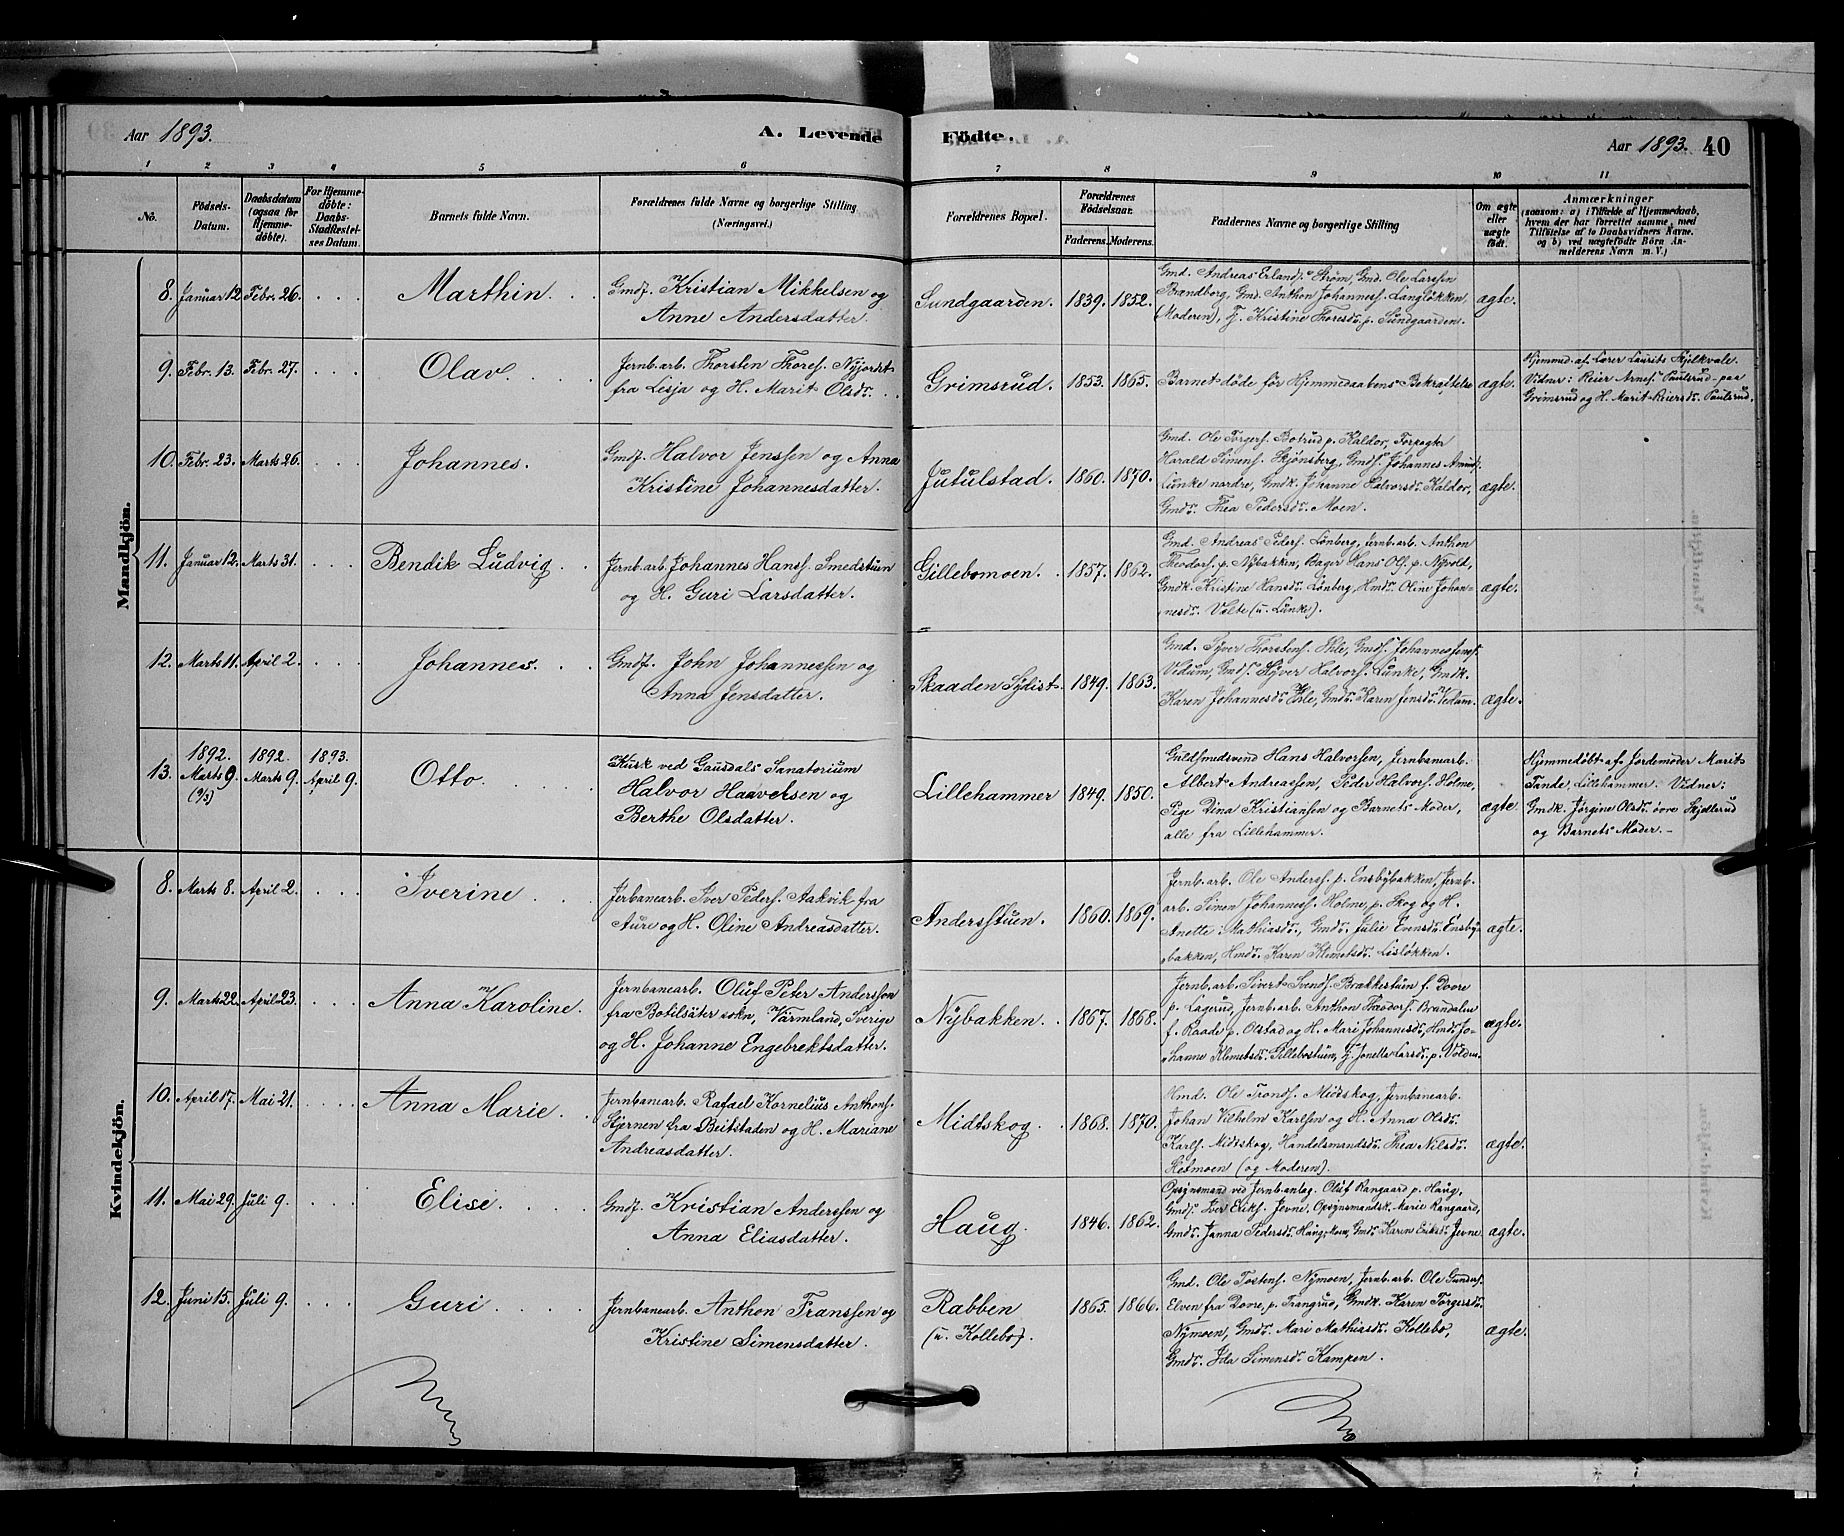 Aar 1893.
A. Levende
Födte.
Aar 1893. 40
1 2 3 4 5 6 7 8 9 10 11
No.
Födsels-
Datum.
Daabsdatum
(ogsaa for
Hjemme-
döbte).
For Hjemme-
döbte:
Daabs-
Stadfæstel-
ses Datum.
Barnets fulde Navn.
Forældrenes fulde Navne og borgerlige Stilling
(Næringsvei.)
Forældrenes Bopæl.
Forældrenes
Födselsaar.
Faderens. Moderens.
Faddernes Navne og borgerlige Stilling
Om ægte
eller
uægte
födt.
Anmærkninger
(saasom: a) i Tilfælde af Hjemmedaab,
hvem der har forrettet samme, med
Tilföielse af to Daabsvidners Navne,
og b) ved uægtefödte Börn An-
melderens Navn m. V.)
Mandkjön.
8. Januar 12 Febr. 26. . . . Marthin. . .
Gmdf. Kristian Mikkelsen og
Anne Andersdatter.
Sundgaarden. 1839. 1852.
Gmd. Andreas Erlands. Strøm, Gmd. Ole Larssen
Brændborg, Gmd. Anthon Johanness. Langløkken,
(Moderen), Tj. Kristine Thoresdr. p. Sundgaarden.
ægte.
9. Febr. 13. Febr. 27. . . . Olav. . . .
Jernb.arb. Thorsten Thores. Nyjordet
fra Lesja og H. Marit Olsdr. . .
Grimsrud. 1853. 1865.
Barnet døde før Hjemmedaabens Bekræftelse
ægte.
Hjemmed. af Lærer Laurits Skjelkvale.
Vidner: Reier Arnes. Paulsrud paa
Grimsrud og H. Marit Reiersdr. Paulsrud.
10. Febr. 23. Marts 26. . . . Johannes.
Gmdf. Halvor Jenssen og Anna
Kristine Johannesdatter.
Jutulstad. 1860. 1870.
Gmd. Ole Torgers. Botrud p. Kaldor, Forpagter
Harald Simens. Skjønsberg, Gmds. Johannes Amund.
Lunke nordre, Gmdk. Johanne Halvorsdr. Kaldor,
Gmdr. Thea Pedersdr. Moen.
ægte.
11. Januar 12. Marts 31. . . . Bendik Ludvig. .
Jernb.arb. Johannes Hanss. Smedstuen
og H. Guri Larsdatter.
Gillebomoen. 1857. 1862.
Gmd. Andreas Peders. Lønberg, Jernb.arb. Anthon
Theodors. p. Nybakken, Bager Hans Ols. p. Nyvold,
Gmdk. Kristine Hansdr. Lønberg, Hmdr. Oline Johan-
nesdr. Volte (u. Lunke).
ægte.
12. Marts 11. April 2. . . . Johannes. . .
Gmdf. John Johannessen og
Anna Jensdatter.
Skaaden Sydist. 1849. 1863.
Gmd. Syver Thorstens. Ihle, Gmds. Johannes Jens.
Vedum, Gmds. Syver Halvors. Lunke, Gmdk.
Karen Johannesdr. Ihle, Gmdr. Karen Jensdr. Vedum.
ægte.
13. 1892. Marts 9 (9/3) 1892. Marts 9. 1893. April 9. Otto. . . .
Kusk ved Gausdals Sanatorium
Halvor Haaversen og
Berthe Olsdatter.
Lillehammer 1849. 1850.
Guldsmedsvend Hans Halvorsen, Jernbanearb.
Albert Andreassen, Peder Halvors. Holme,
Pige Dina Kristiansen og Barnets Moder,
alle fra Lillehammer.
ægte.
Hjemmedøbt af Jordemoder Marit
Tande, Lillehammer. Vidner:
Gmdk. Jørgine Olsdr. øvre Skjellerud
og Barnets Moder. –
Kvindekjön.
8. Marts 8. April 2. . . . Iverine . . .
Jerbanearb. Iver Peders. Aakvik fra
Aure og H. Oline Andreasdatter.
Andersstuen. 1860. 1869.
Jernb.arb. Ole Anderss. p. Ensbybakken, Jernb.
arb. Simen Johanness. Holme, p. Skog og H.
Anette Mathiasdr., Gmdr. Julie Evensdr. Ensby-
bakken, Hmdr. Karen Klemetsdr. Lisløkken.
ægte.
9. Marts 22. April 23. . . . Anna Karoline.
Jernbanearb. Oluf Peter Anderssøn
fra Botilsäter sokn, Värmland, Sverige
og H. Johanne Engebrektsdatter.
Nybakken. 1867. 1868.
Jernb.arb. Sivert Svends. Brækkestuen f. Dovre
p. Lagerud, Jernb.arb. Anthon Theodors. Brændalen
f. Raade p. Olstad og H. Mari Johannesdr., Hmdr. Jo-
hanne Klemetsdr. Gillebostuen, Tj. Jonetta Larsdr. p. Volden.
ægte.
10. April 17. Mai 21. . . . Anna Marie.
Jernbanearb. Rafael Kornelius Anthons.
Hjernen fra Beitstaden og H. Mariane
Andreasdatter.
Midtskog. 1868. 1870.
Hmd. Ole Tronds. Midtskog, Jernbanearb.
Johan Vilhelm Karlsen og H. Anna Olsdr.
Karls. Midtskog, Handelsmandsdr. Thea Nilsdr.
Hetmoen (og Moderen).
ægte.
11. Mai 29. Juli 9. . . . Elise. . . .
Gmdf. Kristian Anderssen og
Anna Eliasdatter.
Haug. 1846. 1862.
Opsynsmand ved Jernb.anlæg. Oluf Rangaard p. Haug,
Gmds. Iver Eriks. Jevne, Opsynsmandsk. Marie Rangaard,
Gmdr. Janna Pedersdr. Haug, Gmdr. Karen Eriksdr. Jevne
ægte.
12. Juni 15. Juli 9. . . . Guri. . . .
Jernbanearb. Anthon Franssen og
Kristine Simensdatter.
Rabben
(u. Kollebo).
1865. 1866.
Gmd. Ole Tostens. Nymoen, Jernb.arb. Ole Gunders.
Elven fra Dovre, p. Trangrud, Gmdk. Karen Torgersdr.
Nymoen, Gmdr. Mari Mathiasdr. Kollebo,
Gmdr. Ida Simensdr. Kampen.
ægte.